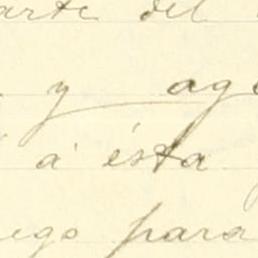 arte del
y age
á ésta
ego para